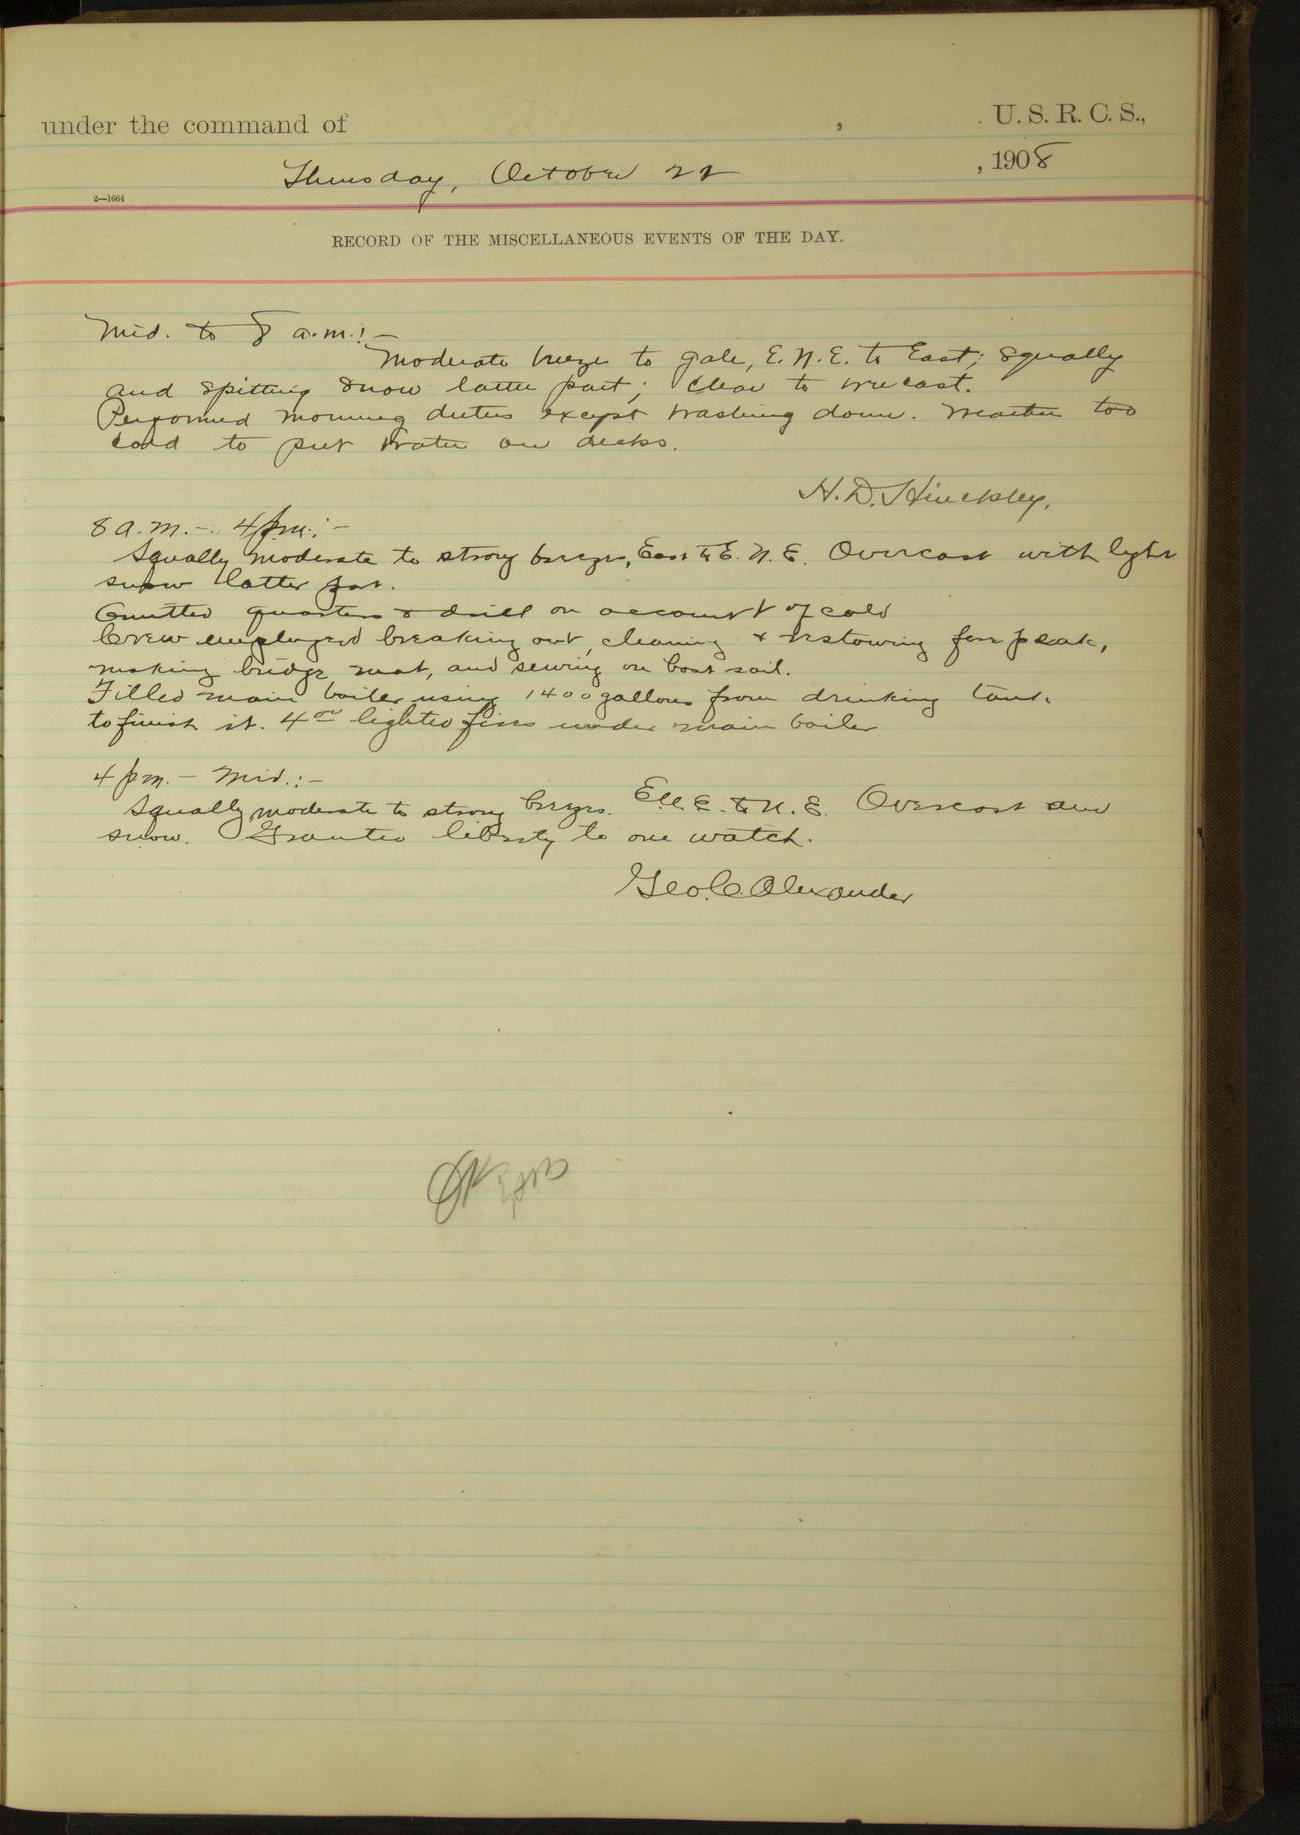 under the command of , U. S. R. C. S.,
Thursday, October 22 , 1908
2—1664
RECORD OF THE MISCELLANEOUS EVENTS OF THE DAY.
Mid. to 8 a.m.:-
Moderate breeze to gale, E.N.E. to East; squally
and spitting snow latter part; clear to overcast.
Performed morning duties except washing down. Weather too
cold to put water on decks.
H. D. Hinckley.
8 a.m. - 4 p.m.:-
Squally moderate to strong breezes, East to E. N. E. Overcast with light
snow latter part.
Omitted quarters & drill on account of cold
Crew employed breaking out, cleaning & restowing fore peak,
making bridge mat, and sewing on boat sail.
Filled main boiler using 1400 gallons from drinking tank
to finish it. 4 00 lighted fires under main boiler
4 p.m. - Mid.:-
Squally moderate to strong breezes. E.N.E. to N. E. Overcast and
snow. Granted liberty to one watch.
Geo. C. Alexander
OK